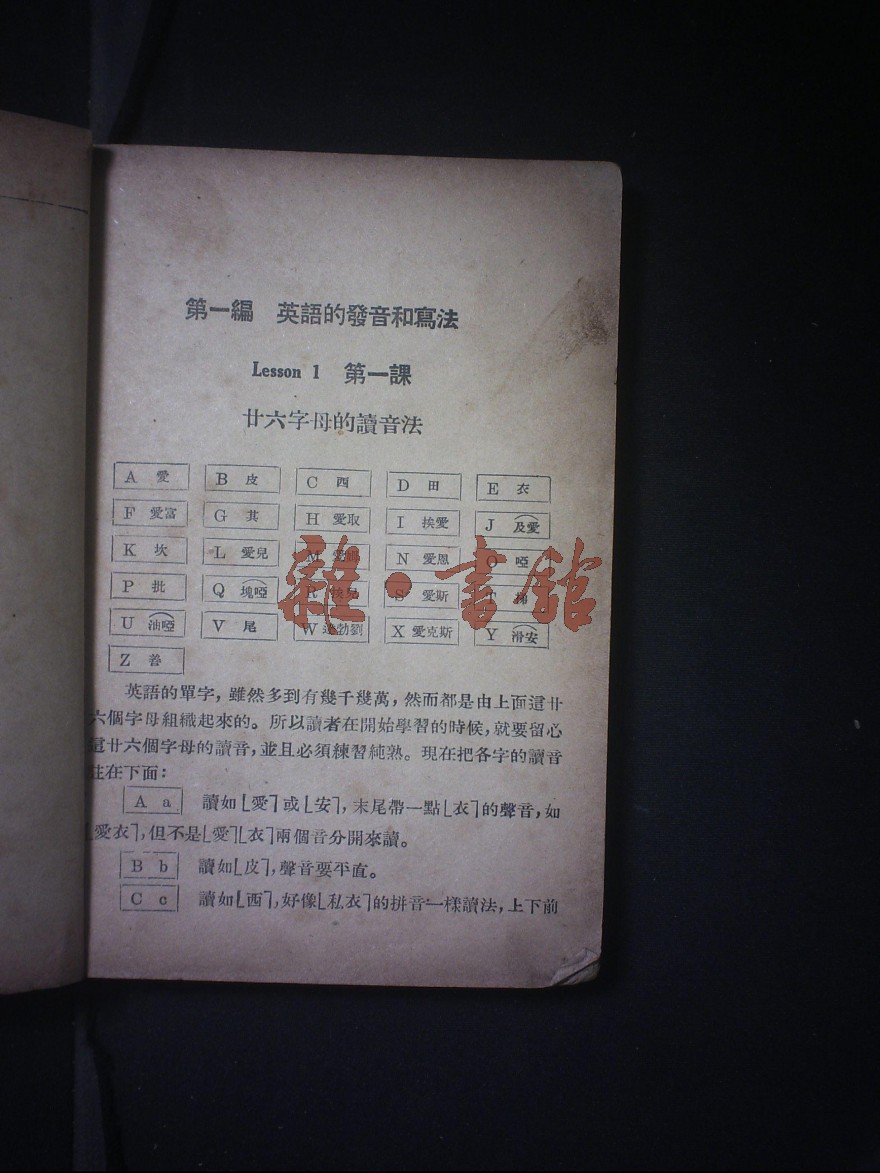 第一編 英語的發音和寫法
Lesson 1 第一課
廿六字母的讀音法
A 愛 B 皮 C 西 D 田 E 衣
F 愛富 G 其 H 愛取 I 挨愛 J 及愛
K 坎 L 愛兒 M N 愛恩 O 啞
P 批 Q 塊啞 R 挨兒 S 愛斯 T
U 油啞 V 尾 W 勃劉 X 愛克斯 Y 滑安
Z 善
雜·書館
英語的單字,雖然多到有幾千幾萬,然而都是由上面這廿
六個字母組織起來的。所以讀者在開始學習的時候,就要留心
這廿六個字母的讀音,並且必須練習純熟。現在把各字的讀音
註在下面:
A a 讀如⌊愛⌉或⌊安⌉,末尾帶一點⌊衣⌉的聲音,如
⌊愛衣⌉,但不是⌊愛⌉⌊衣⌉兩個音分開來讀。
B b 讀如⌊皮⌉,聲音要平直。
C c 讀如⌊西⌉,好像⌊私衣⌉的拼音一樣讀法,上下前